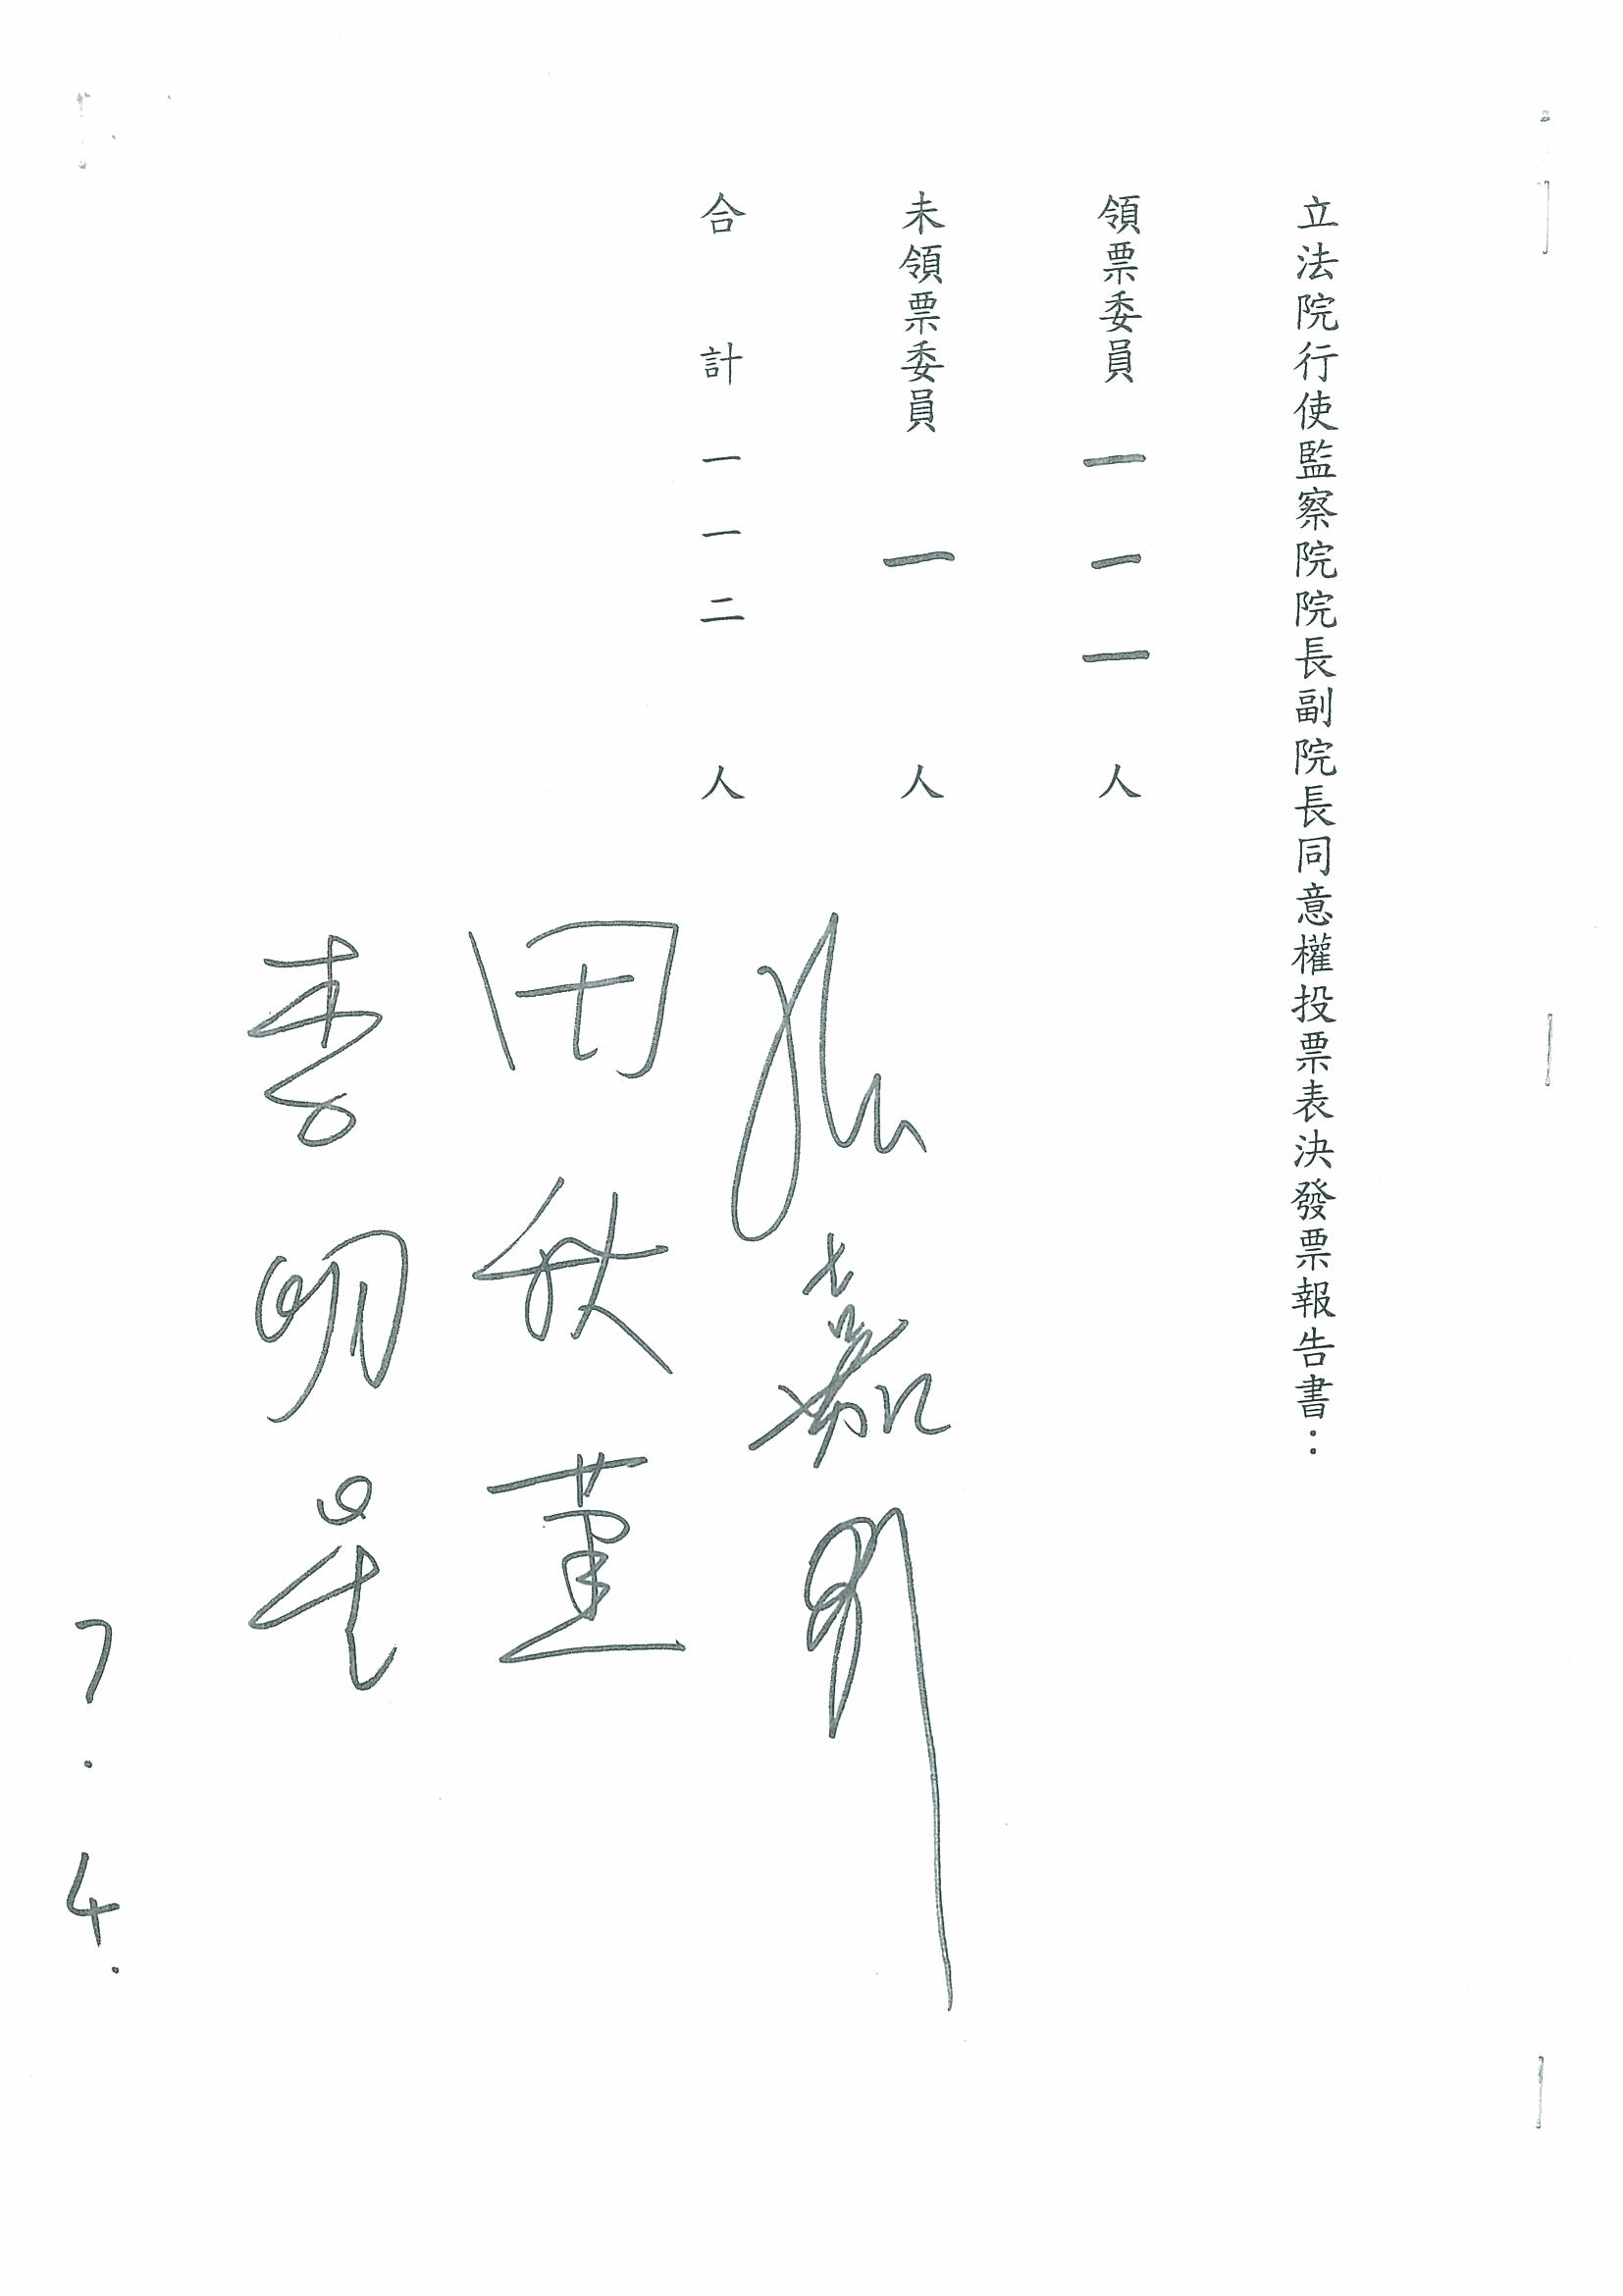 立法院行使監察院院長副院長同意權投票表決發票報告書：
領票委員 一一一 人
未領票委員 一 人
合計 一一二 人
田秋堇
李明星
7.4.